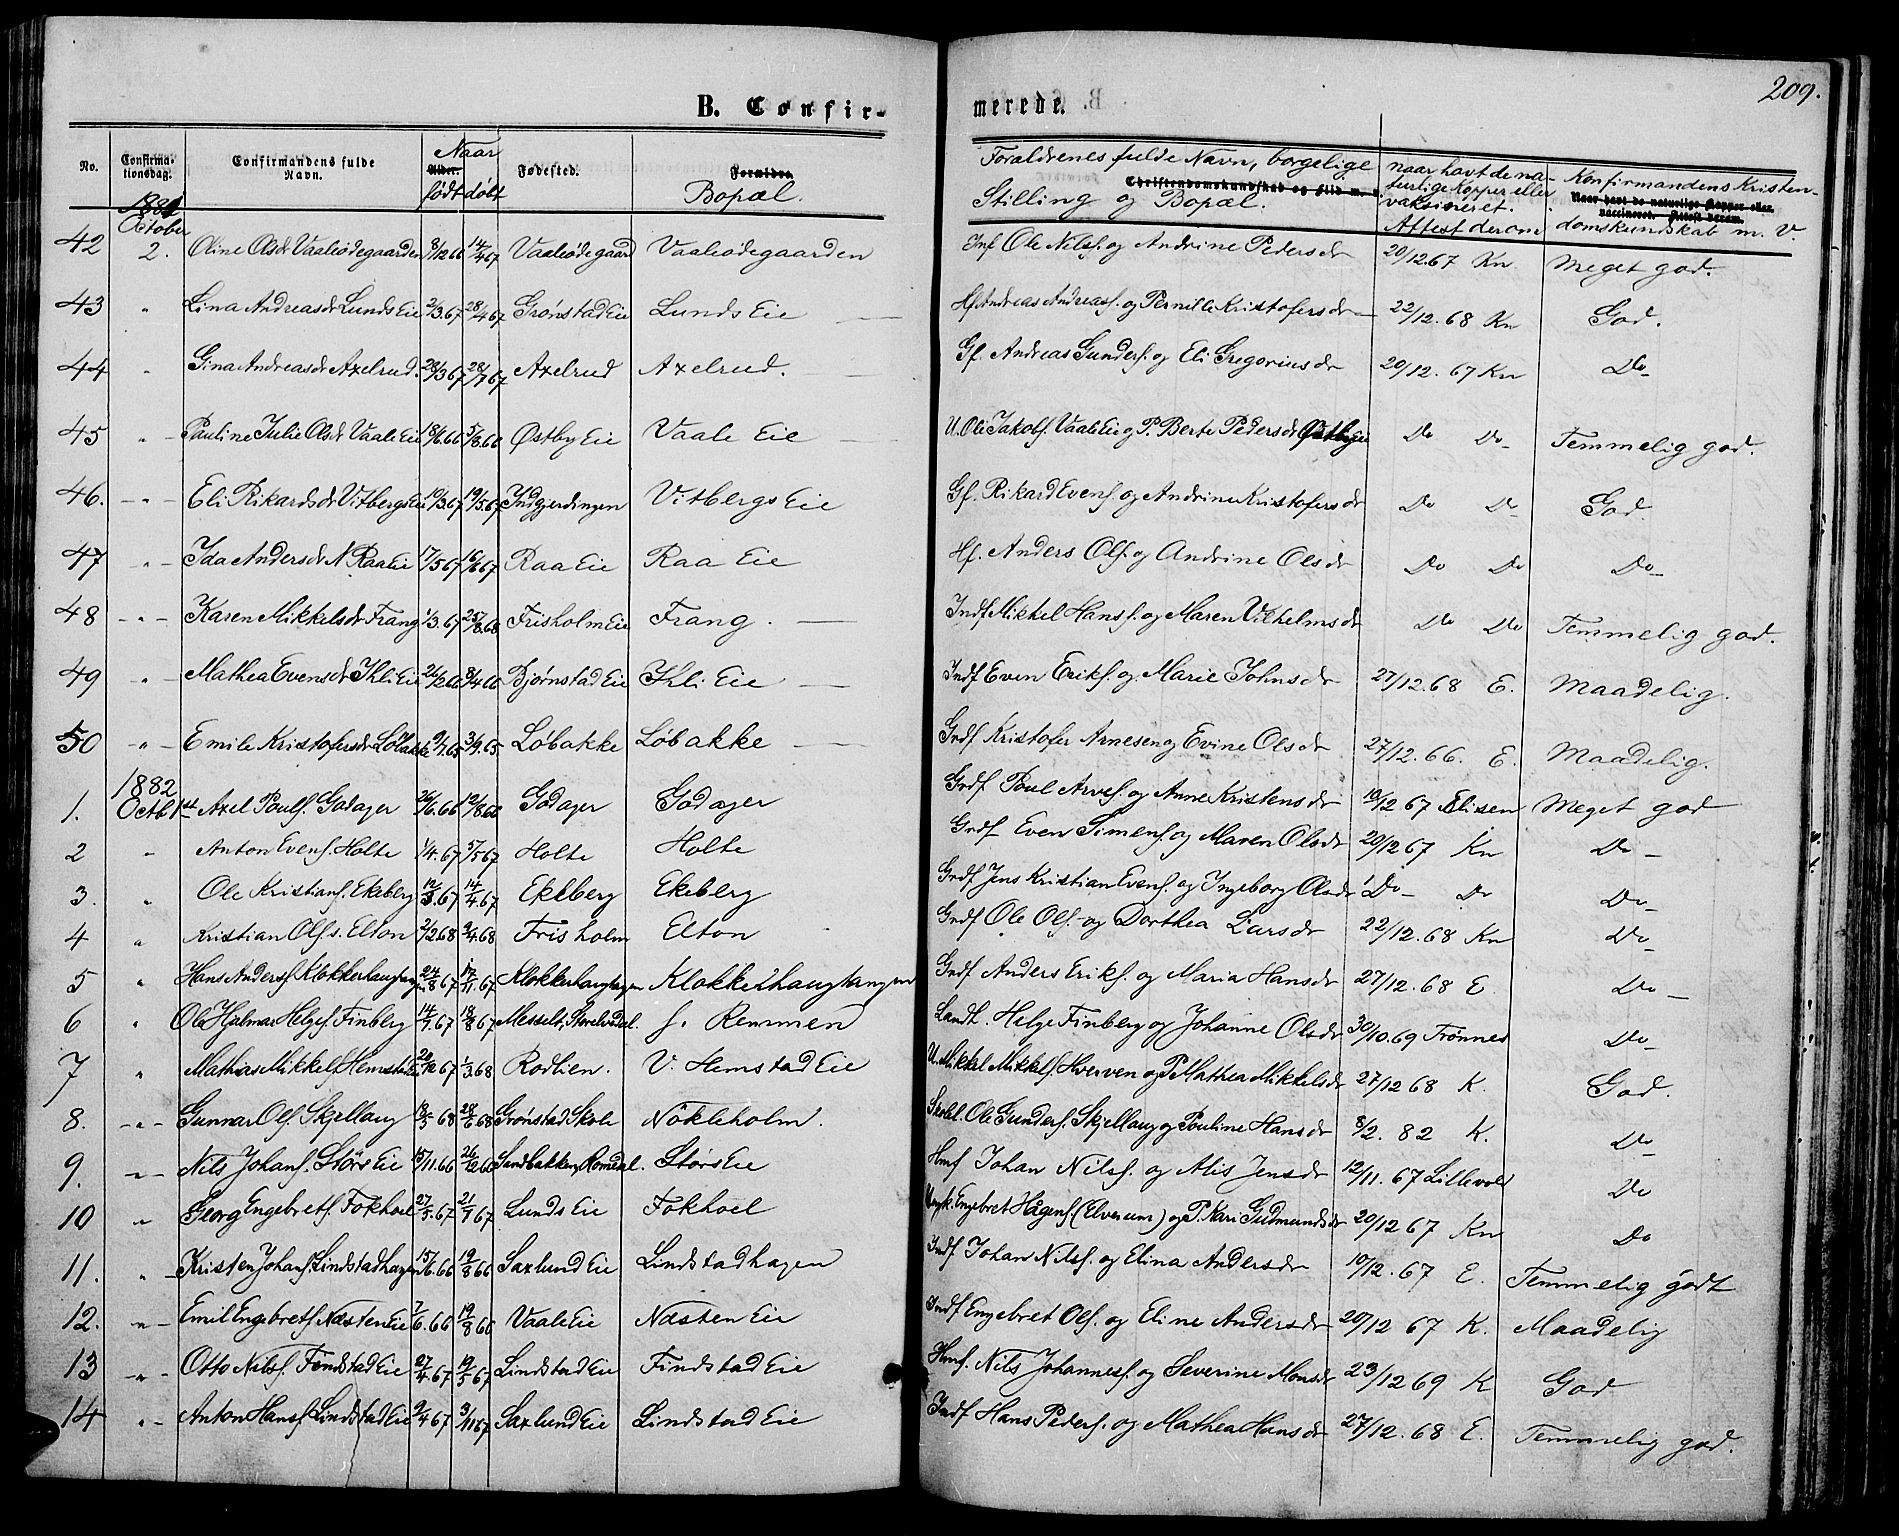 209.
B. Confir-
merede.
No. Confirma-tionsdag. Confirmandens fulde Navn. Naar Alder. født døbt Fødested. Forældre Bopæl.
Foraldrenes fulde Navn, borgelige Stilling og Bopæl. Christendomskundskab og Flid m. v. naar havt de naturlige Kopper eller vaksineret. Attest derom Konfirmandens Kristendomskundskab m. V. Naar havt de naturlige Kopper eller vaccineret. Attest derom.
1881
42 October 2. Oline Olsdr Vaaleødegaarden 8/12 66 14/4 67 Vaaleødegaard Vaaleødegaarden Inf Ole Nilsf. og Andrine Pedersdr 20/12.67 Kn Meget god.
43 " Lina Andreasdr Lunds Eie 2/3.67 28/4 67 Grønstad Eie Lunds Eie Hf Andreas Andreasf. og Pernille Kristofersdr 22/12.68 Kn God.
44 " Gina Andreasdr Axelrud. 28/3 67 28/7 67 Axelrud Axelrud. Gf. Andreas Gundersf. og Eli Gregoriusdr 20/12.67 Kn Do
45 " Pauline Julie Olsdr Vaale Eie 18/6.66 5/8.66 Østby Eie Vaale Eie U. Ole Jakobf. Vaale Eie og P. Berte Pedersdr Østby Eie Do Do Temmelig god.
46. " Eli Rikardsdr Vitbergs Eie 10/3.67 19/5.67 Indgjerdingen Vitbergs Eie Gf. Rikard Evenf. og Andrine Kristofersdr Do Do God
47 " Ida Andersdr N. Raa Eie 17/5 67 16/6 67 Raa Eie Raa Eie Hf. Anders Olf. og Andrine Olsdr Do Do Do
48 " Karen Mikkelsdr Frang 1/3.67 25/8.68 Frisholm Eie Frang. Indf Mikkel Hansf. og Maren Vilhelmsdr Do Do Temmelig god.
49 " Mathea Evensdr Ihli Eie 26/2 66 8/4 66 Bjørnstad Eie Ihli Eie Indf Even Erikf. og Marie Johnsdr 27/12.68 E. Maadelig.
50 " Emile Kristofersdr Løbakke 9/7.65 3/9.65 Løbakke Løbakke Grdf Kristofer Arnesen og Evine Olsdr 27/12.66. E. Maadelig.
1882
1. Octb 1st Axel Poulf. Godager 26/6.66 12/8 66 Godager Godager Grdf Poul Arvef. og Anne Kristensdr 10/12 67 Elisen Meget god
2 " Anton Evenf. Holte 1/4.67 5/5 67 Holte Holte Grdf Even Simenf. og Maren Olsdr 20/12 67 Kn Do
3. " Ole Kristianf. Ekeberg 12/3.67 14/4.67 Ekeberg Ekeberg Grdf Jens Kristian Evenf. og Ingeborg Olsdr Do Do Do
4 " Kristian Olfs. Elton 2/2 68 3/4.68 Frisholm Elton Grdf Ole Olf. og Dorthea Larsdr 22/12.68 Kn Do
5 " Hans Andersf. Klokkerhaugtangen 24/8 67 17/11.67 Klokkerhaugtangen Klokkerhaugtangen Grdf Anders Erikf. og Maria Hansdr 27/12.68 E. Do
6 " Ole Hjalmar Helgef. Finberg 14/7.67 18/8 67 Messelt, Storelvedal. f. Remmen Landh. Helge Finberg og Johanne Olsdr 30/10.69 Trønnes Do
7 " Mathias Mikkelf Hemstad Eie 20/12 67 1/3.68 Rodlien. V. Hemstad Eie U. Mikkel Mikkelf. Hverven og P. Mathea Mikkelsdr 27/12 68 K. God.
8. " Gunnar Olf. Skjellaug 18/5 68 28/6 68 Grønstad Skole Nökleholm. Skolel. Ole Gundersf. Skjellaug og Pouline Hansdr 8/2. 82 K. Do
9. " Nils Johanf. Størs Eie 15/11.66 26/12 66 Sandbakken, Romedal. Størs Eie Hmf Johan Nilsf. og Alis Jensdr 12/11.67 Lillevold Do
10 " Georg Engebretf. Fokhoel 27/5.67 21/7 67 Lunds Eie Fokhoel Ungk. Engebret Hagenf. (Elverum) og P. Kari Gudmundsdr 20/12 67 Kn Do
11. " Kristen Johanf. Lindstadhagen 15/6.66 19/8 66 Saxlund Eie Lindstadhagen Indf Johan Nilsf. og Elina Andersdr 10/12.67 E. Temmelig godt
12. " Emil Engebretf. Næsten Eie 7/6.66 19/8 66 Vaale Eie Næsten Eie Indf Engebret Olf. og Eline Andersdr 20/12 67 K. Maadelig
13 " Otto Nilsf. Findstad Eie 27/4.67 19/5 67 Lindstad Eie Findstad Eie Hmf. Nils Johannesf. og Severine Monsdr 23/12 69 K God
14 " Anton Hansf. Lindstad Eie 9/4 67 3/11 67 Saxlund Eie Lindstad Eie Indf Hans Pedersf. og Mathea Hansdr 27/12.68 E. Temmelig god.